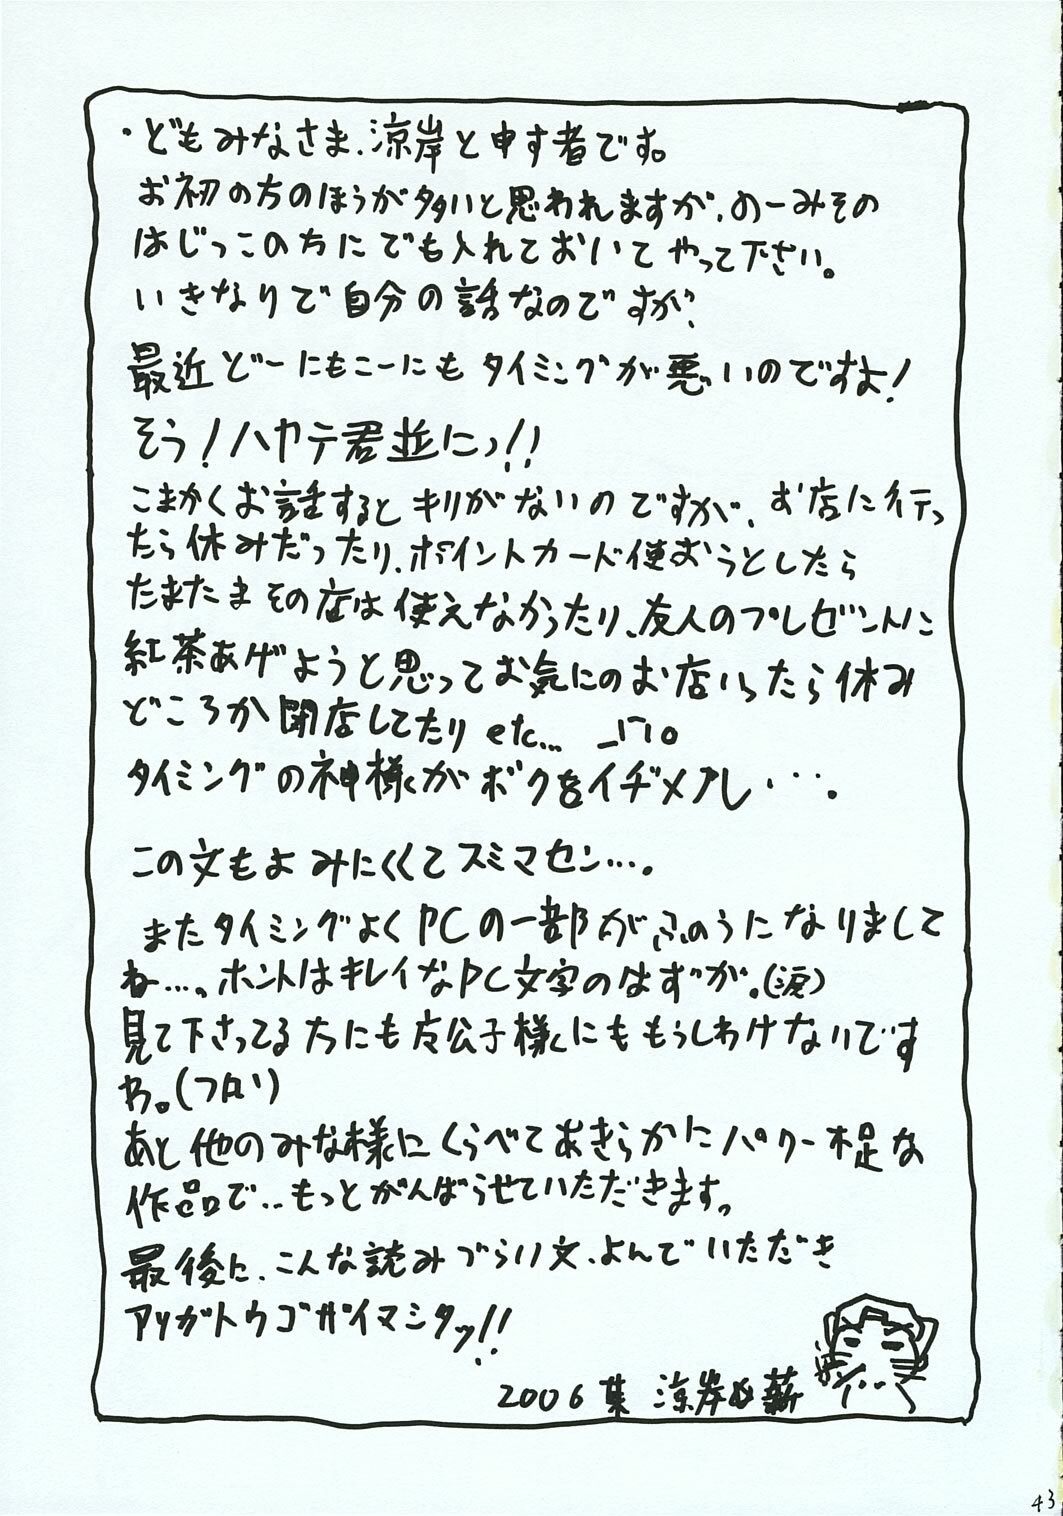 ・どもみなさま、涼岸と申す者です。
お初の方のほうが多いと思われますが、のーみその
はじっこの方にでも入れておいてやって下さい。
いきなりで自分の話なのですが、
最近どーにもこーにもタイミングが悪いのですよ!
そう!ハヤテ君並にっ!!
こまかくお話するとキリがないのですが、お店に行っ
たら休みだったり、ポイントカード使おうとしたら
たまたまその店は使えなかったり、友人のプレゼントに
紅茶あげようと思ってお気にのお店いったら休み
どころか閉店してたり etc... _| ̄|o
タイミングの神様がボクをイヂメル・・・。
この文もよみにくくてスミマセン…。
またタイミングよくPCの一部がふのうになりまして
ね…。ホントはキレイなPC文字のはずが。(涙)
見て下さってる方にも友公子様にももうしわけないです
わ。(フロリ)
あと他のみな様にくらべてあきらかにパワー不足な
作品で‥もっとがんばらせていただきます。
最後に、こんな読みづらい文、よんでいただき
アリガトウゴザイマシタッ!!
2006 涼岸 薪
43